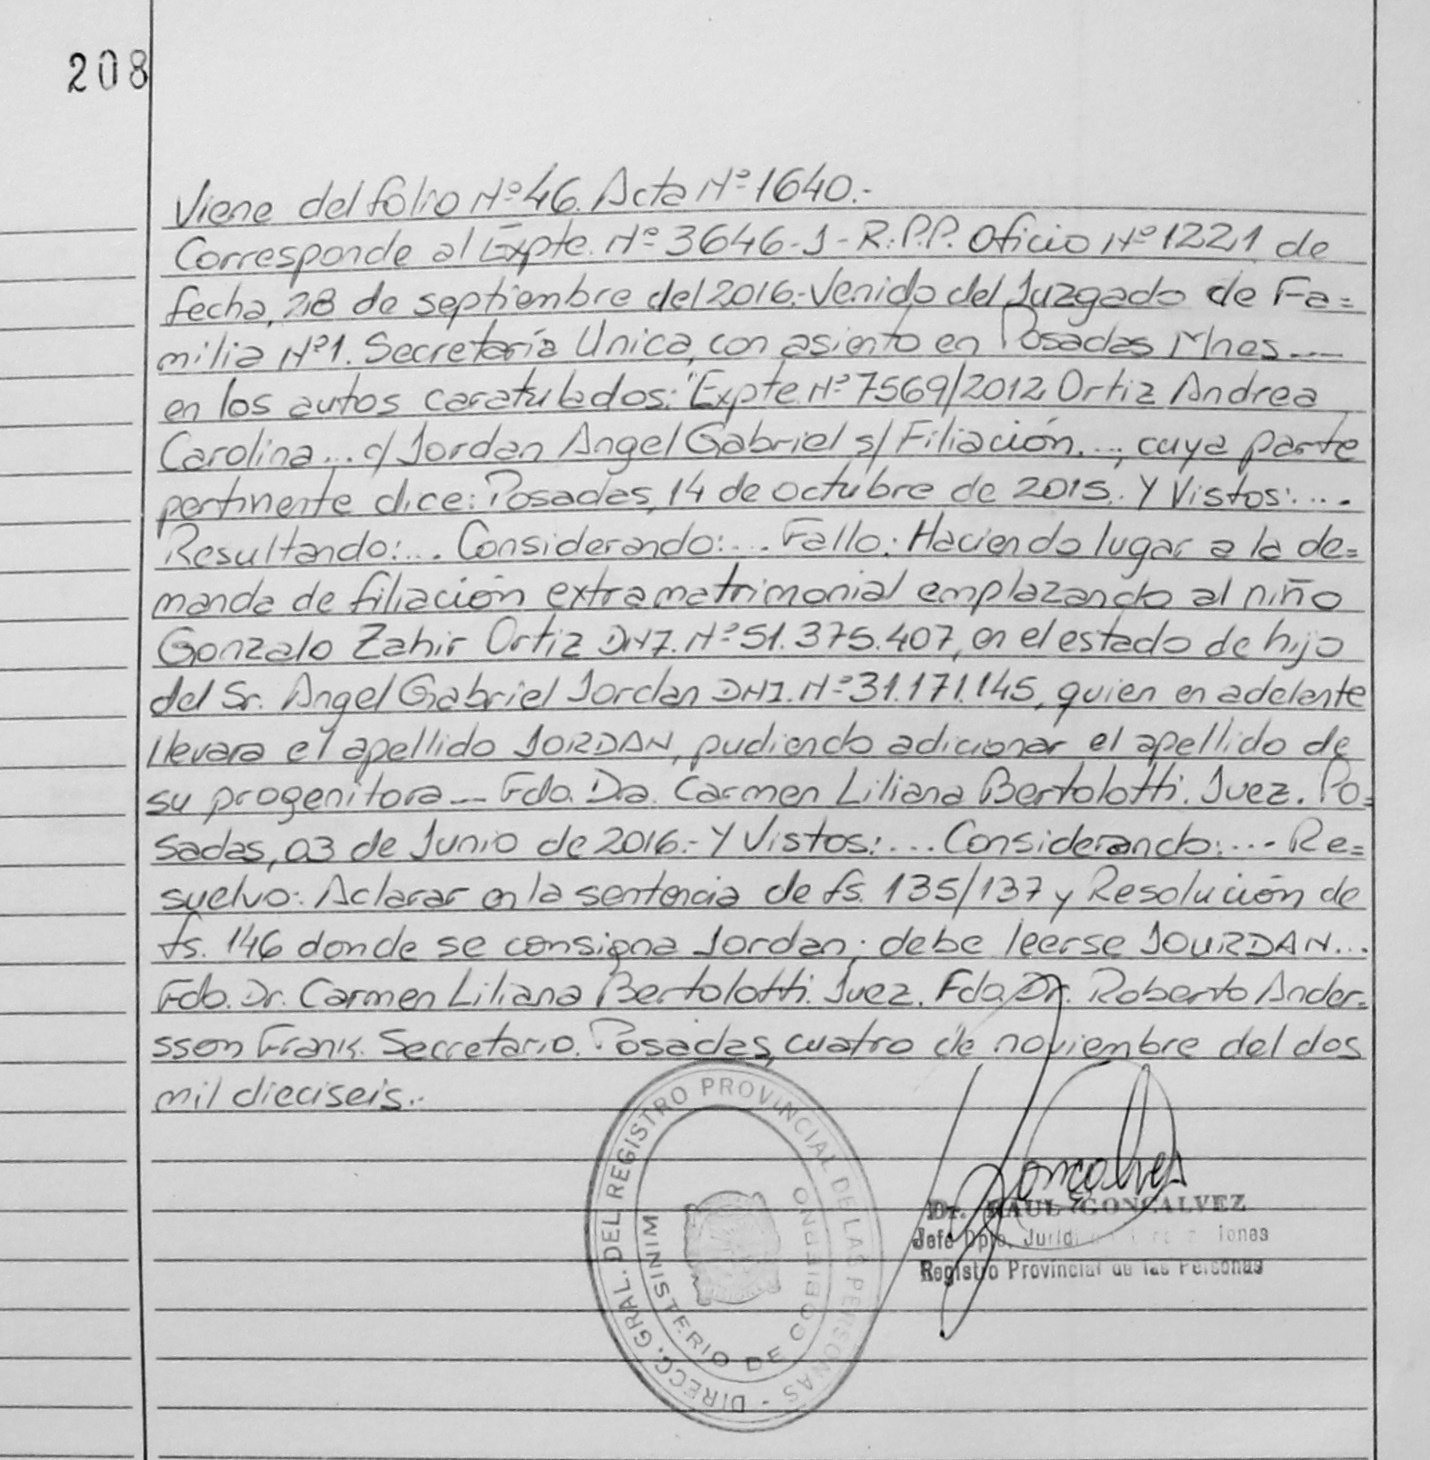 208
Viene del folio Nº 46. Acta Nº 1640.-
Corresponde al Expte. Nº 3646-J-R.P.P. Oficio Nº 1221 de
fecha, 28 de septiembre del 2016.- Venido del Juzgado de Fa=
milia Nº1. Secretaría Unica, con asiento en Posadas Mnes.---
en los autos caratulados: "Expte. Nº 7569/2012 Ortiz Andrea
Carolina... c/ Jordan Angel Gabriel s/ Filiación...., cuya parte
pertinente dice: Posadas, 14 de octubre de 2015. Y Vistos:....
Resultando:... Considerando:... Fallo: Haciendo lugar a la de=
manda de filiación extramatrimonial emplazando al niño
Gonzalo Zahir Ortiz DNI. Nº 51.375.407, en el estado de hijo
del Sr. Angel Gabriel Jordan DNI. Nº 31.171.145, quien en adelante
llevara el apellido JORDAN, pudiendo adicionar el apellido de
su progenitora — Fdo. Dra. Carmen Liliana Bertolotti. Juez. Po=
sadas, 03 de Junio de 2016.- Y Vistos:... Considerando:... Re=
suelvo: Aclarar en la sentencia de fs. 135/137 y Resolución de
fs. 146 donde se consigna Jordan; debe leerse JOURDAN...
Fdo. Dr. Carmen Liliana Bertolotti. Juez. Fdo. Dr. Roberto Ander=
sson Frank. Secretario. Posadas, cuatro de noviembre del dos
mil dieciseis.-
DIRECC. GRAL. DEL REGISTRO PROVINCIAL DE LAS PERSONAS -
MINISTERIO DE GOBIERNO
Goncalves
Dr. RAUL GONCALVEZ
Jefe Dpto.
Registro Provincial de las Personas